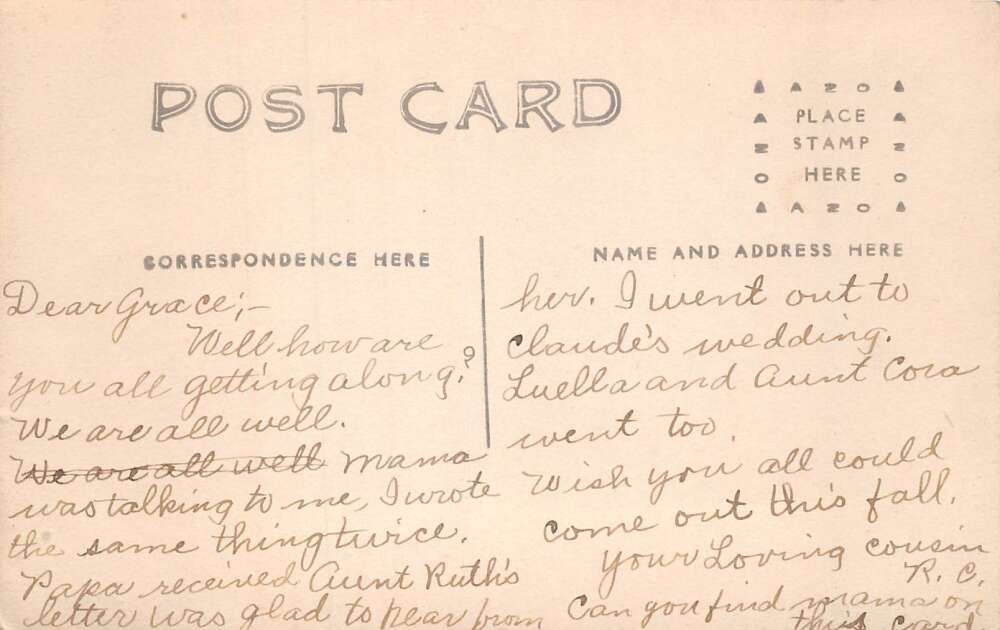 POST CARD
AZO
PLACE
STAMP
HERE
AZO
CORRESPONDENCE HERE
Dear Grace;-
Well how are
you all getting along?
We are all well.
We are all well mama
was talking to me, I wrote
the same thing twice.
Papa received Aunt Ruth's
letter was glad to hear from
NAME AND ADDRESS HERE
her. I went out to
Claude's wedding.
Luella and Aunt Cora
went too.
Wish you all could
come out this fall.
Your Loving cousin
R. C.
Can you find mama on
this card